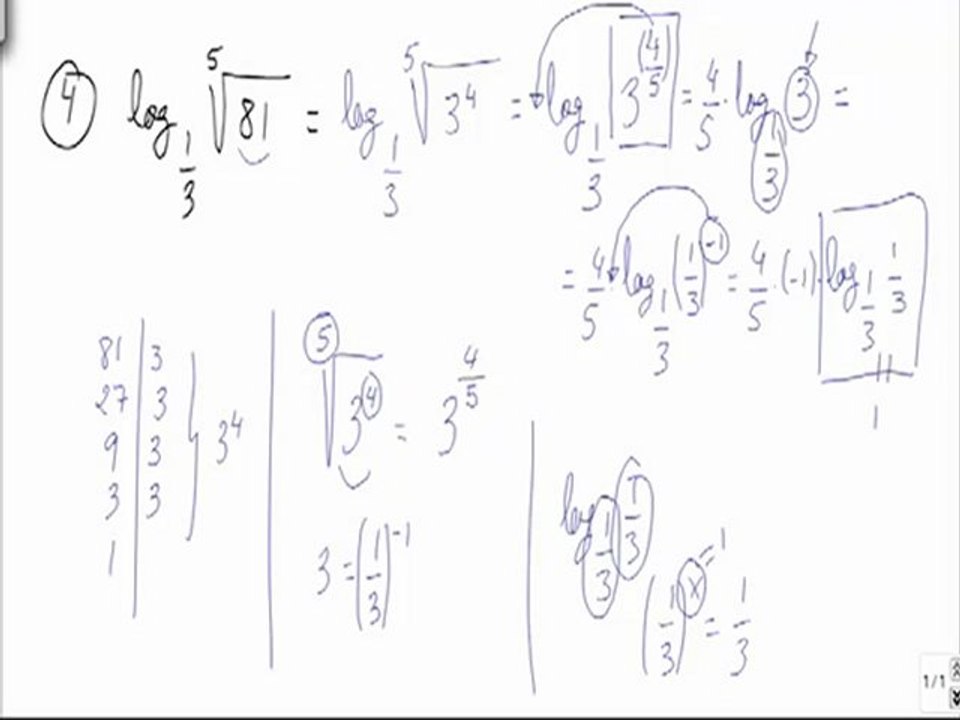 ④ log_{1/3} ⁵√81 = log_{1/3} ⁵√3⁴ = log_{1/3} 3^{(4/5)} = 4/5 · log_{1/3} 3 =
= 4/5 · log_{1/3} (1/3)^{-1} = 4/5 · (-1) · log_{1/3} 1/3
1
81 | 3
27 | 3
9 | 3
3 | 3
1
} 3⁴
⁵√3⁴ = 3^{4/5}
3 = (1/3)^{-1}
log_{1/3} 1/3
(1/3)^x = 1/3
= 1
1/1